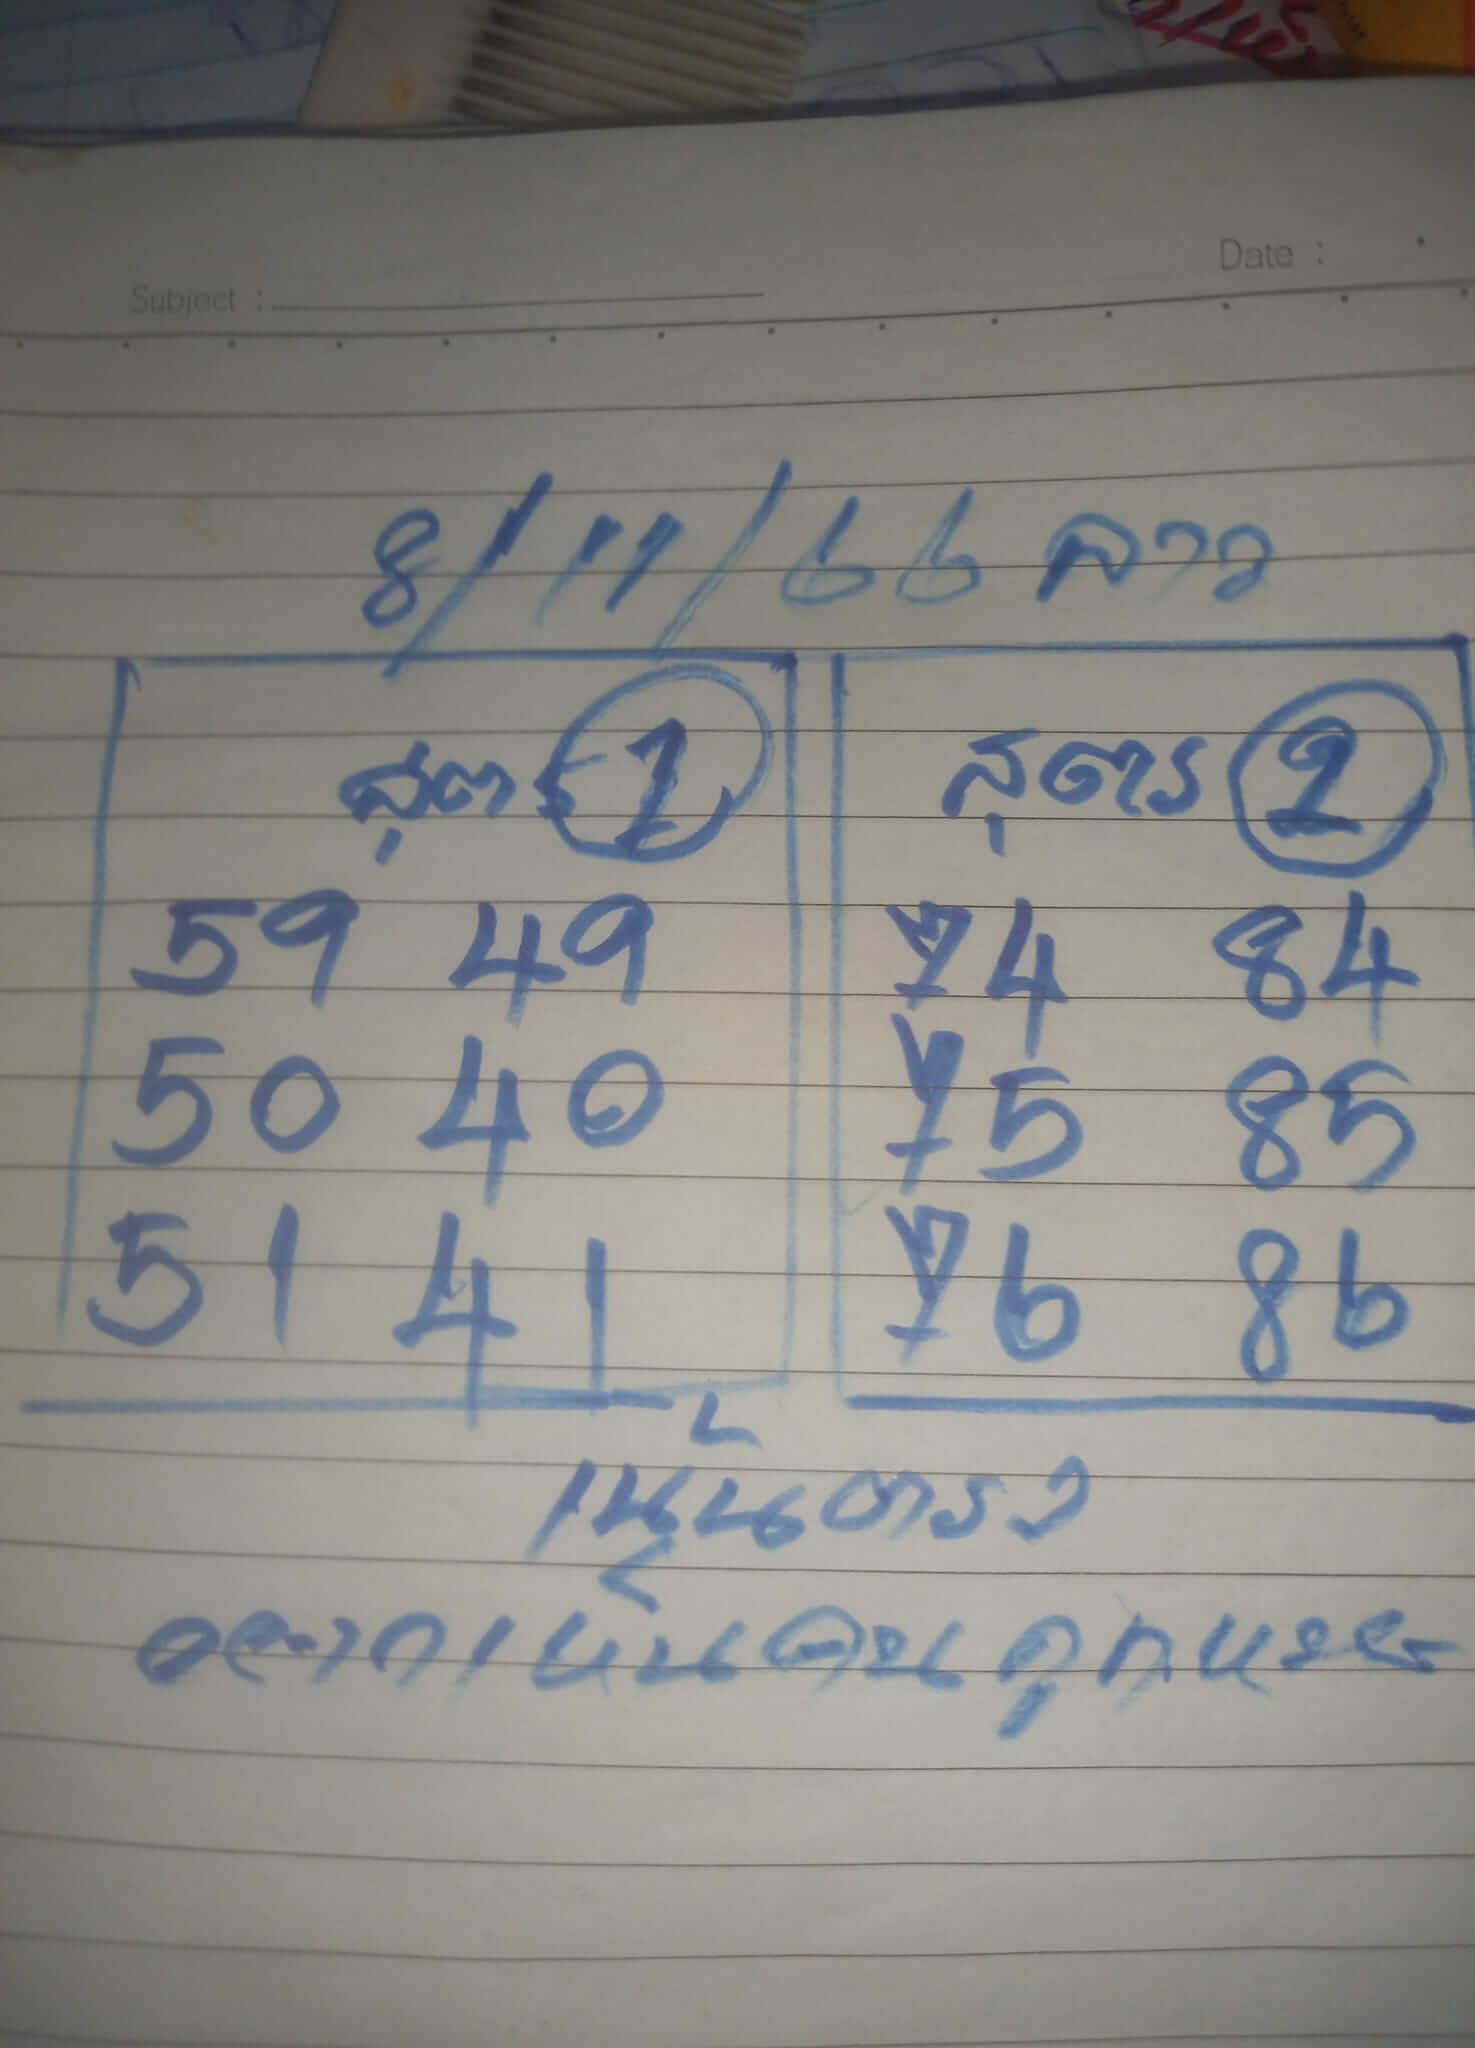 Date :
Subject :
8/11/66 ลาว
สูตร 1
59 49
50 40
51 41
สูตร 2
74 84
75 85
76 86
เน้นตรง
อยากเห็นคนถูกหวย